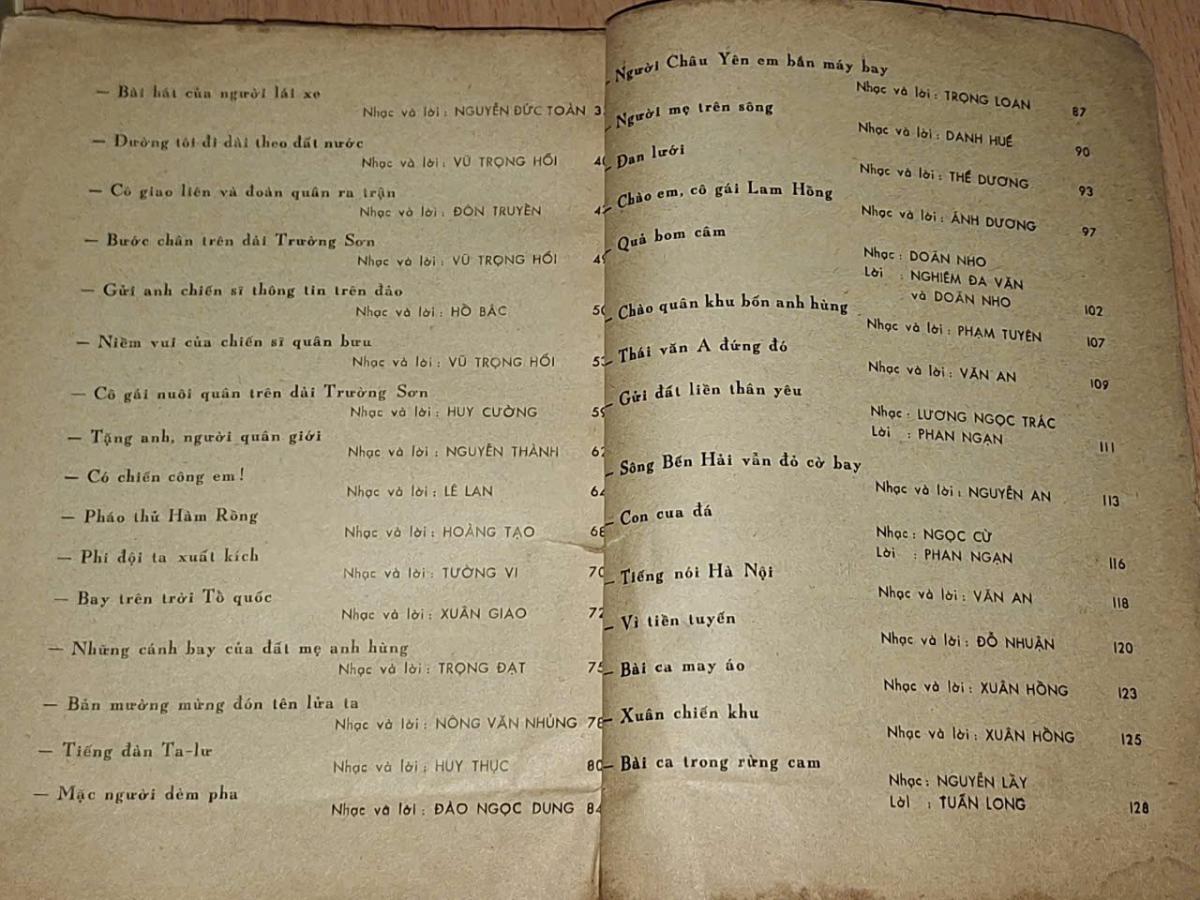 — Bài hát của người lái xe
Nhạc và lời : NGUYỄN ĐỨC TOÀN
— Đường tôi đi dài theo đất nước
Nhạc và lời : VŨ TRỌNG HỐI
— Cô giao liên và đoàn quân ra trận
Nhạc và lời : ĐÔN TRUYỀN
— Bước chân trên dải Trường Sơn
Nhạc và lời : VŨ TRỌNG HỐI
— Gửi anh chiến sĩ thông tin trên đảo
Nhạc và lời : HỒ BẮC 50
— Niềm vui của chiến sĩ quân bưu
Nhạc và lời : VŨ TRỌNG HỐI 53
— Cô gái nuôi quân trên dải Trường Sơn
Nhạc và lời : HUY CƯỜNG 59
— Tặng anh, người quân giới
Nhạc và lời : NGUYỄN THÀNH 62
— Có chiến công em!
Nhạc và lời : LÊ LAN 64
— Pháo thủ Hàm Rồng
Nhạc và lời : HOÀNG TẠO 68
— Phi đội ta xuất kích
Nhạc và lời : TƯỜNG VI 70
— Bay trên trời Tổ quốc
Nhạc và lời : XUÂN GIAO 72
— Những cánh bay của đất mẹ anh hùng
Nhạc và lời : TRỌNG ĐẠT 75
— Bản mường mừng đón tên lửa ta
Nhạc và lời : NÔNG VĂN NHỦNG 78
— Tiếng đàn Ta-lư
Nhạc và lời : HUY THỤC 80
— Mặc người dèm pha
Nhạc và lời : ĐÀO NGỌC DUNG 84
— Người Châu Yên em bắn máy bay
Nhạc và lời : TRỌNG LOAN 87
— Người mẹ trên sông
Nhạc và lời : DANH HUẾ 90
— Đan lưới
Nhạc và lời : THẾ DƯƠNG 93
— Chào em, cô gái Lam Hồng
Nhạc và lời : ÁNH DƯƠNG 97
— Quả bom câm
Nhạc : DOÃN NHO
Lời : NGHIÊM ĐA VĂN
và DOÃN NHO 102
— Chào quân khu bốn anh hùng
Nhạc và lời : PHẠM TUYÊN 107
— Thái văn A đứng đó
Nhạc và lời : VĂN AN 109
— Gửi đất liền thân yêu
Nhạc : LƯƠNG NGỌC TRÁC
Lời : PHAN NGẠN 111
— Sông Bến Hải vẫn đỏ cờ bay
Nhạc và lời : NGUYỄN AN 113
— Con cua đá
Nhạc : NGỌC CỪ
Lời : PHAN NGẠN 116
— Tiếng nói Hà Nội
Nhạc và lời : VĂN AN 118
— Vì tiền tuyến
Nhạc và lời : ĐỖ NHUẬN 120
— Bài ca may áo
Nhạc và lời : XUÂN HỒNG 123
— Xuân chiến khu
Nhạc và lời : XUÂN HỒNG 125
— Bài ca trong rừng cam
Nhạc : NGUYỄN LẦY
Lời : TUẤN LONG 128